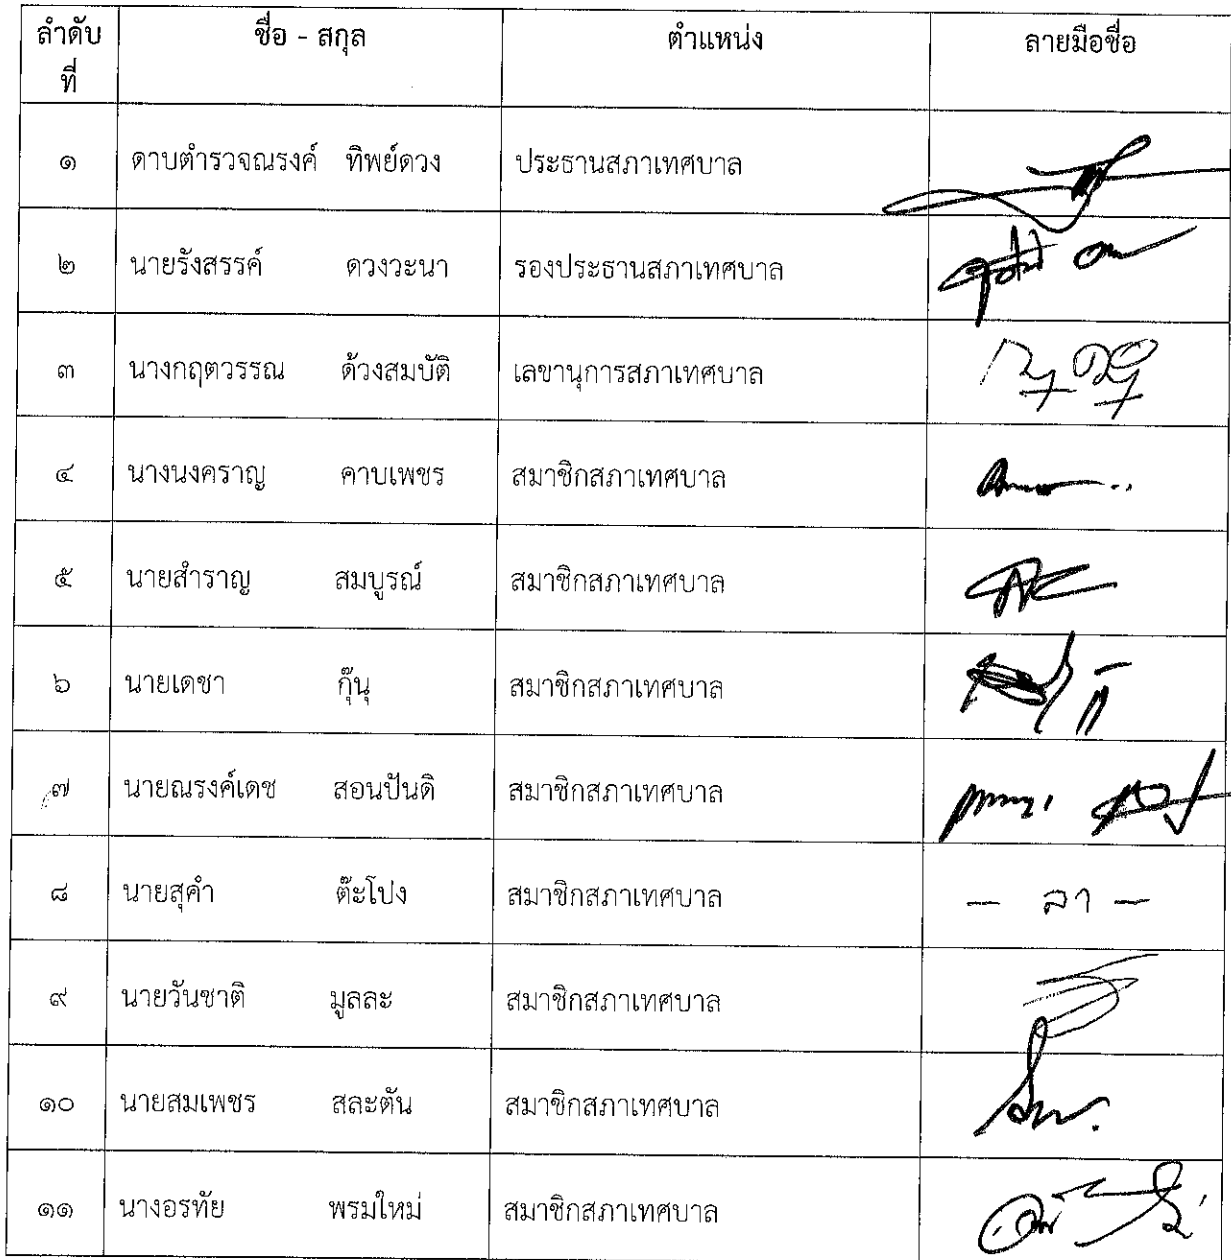 ลำดับ ชื่อ - สกุล ตำแหน่ง ลายมือชื่อ
ที่
๑ ดาบตำรวจณรงค์ ทิพย์ดวง ประธานสภาเทศบาล
๒ นายรังสรรค์ ดวงวะนา รองประธานสภาเทศบาล
๓ นางกฤตวรรณ ด้วงสมบัติ เลขานุการสภาเทศบาล
๔ นางนงคราญ คาบเพชร สมาชิกสภาเทศบาล
๕ นายสำราญ สมบูรณ์ สมาชิกสภาเทศบาล
๖ นายเดชา กุ๊นุ สมาชิกสภาเทศบาล
๗ นายณรงค์เดช สอนปันดิ สมาชิกสภาเทศบาล
๘ นายสุคำ ต๊ะโปง สมาชิกสภาเทศบาล - ลา -
๙ นายวันชาติ มูลละ สมาชิกสภาเทศบาล
๑๐ นายสมเพชร สละตัน สมาชิกสภาเทศบาล
๑๑ นางอรทัย พรมใหม่ สมาชิกสภาเทศบาล